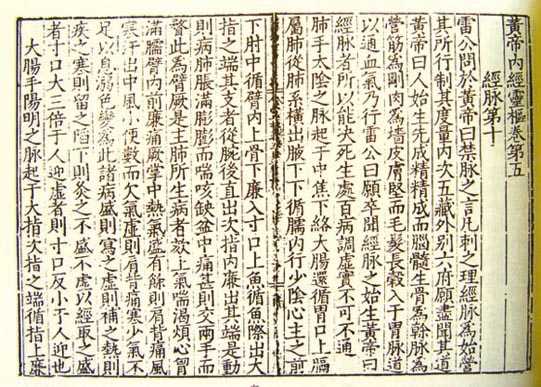 黃帝內經靈樞卷第五
經脈第十
雷公問於黃帝曰禁脈之言凡刺之理經脈為始營
其所行制其度量內次五藏外別六府願盡聞其道
黃帝曰人始生先成精精成而腦髓生骨為幹脈為
營筋為剛肉為墻皮膚堅而毛髮長穀入于胃脈道
以通血氣乃行雷公曰願卒聞經脈之始生黃帝曰
經脈者所以能決死生處百病調虛實不可不通
肺手太陰之脈起于中焦下絡大腸還循胃口上膈
屬肺從肺系橫出腋下下循臑內行少陰心主之前
下肘中循臂內上骨下廉入寸口上魚循魚際出大
指之端其支者從腕後直出次指內廉出其端是動
則病肺脹滿膨膨而喘咳缺盆中痛甚則交兩手而
瞀此為臂厥是主肺所生病者欬上氣喘渴煩心胸
滿臑臂內前廉痛厥掌中熱氣盛有餘則肩背痛風
寒汗出中風小便數而欠氣虛則肩背痛寒少氣不
足以息溺色變為此諸病盛則寫之虛則補之熱則
疾之寒則留之陷下則灸之不盛不虛以經取之盛
者寸口大三倍于人迎虛者則寸口反小于人迎也
大腸手陽明之脈起于大指次指之端循指上廉